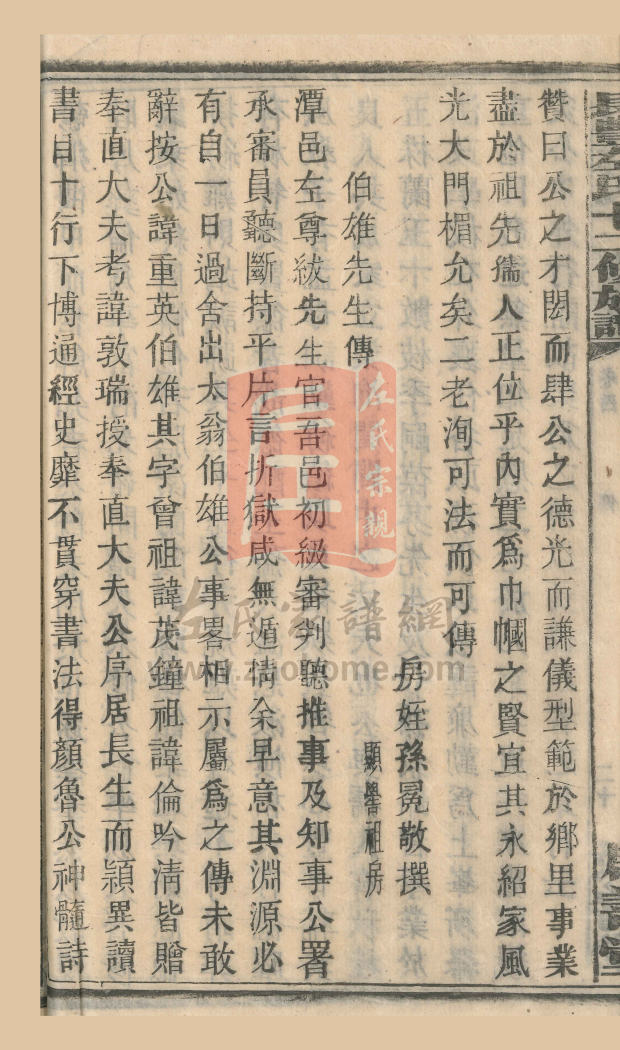 贊曰公之才閎而肆公之德光而謙儀型範於鄉里事業
盡於祖先孺人正位乎內實為巾幗之賢宜其永紹家風
光大門楣允矣二老洵可法而可傳
房姪孫冕敬撰
顯譽祖房
伯雄先生傳
潭邑左尊紱先生官吾邑初級審判聽推事及知事公署
承審員聽斷持平片言折獄咸無遁情余早意其淵源必
有自一日過舍出太翁伯雄公事畧相示屬為之傳未敢
辭按公諱重英伯雄其字曾祖諱茂鐘祖諱倫吟清皆贈
奉直大夫考諱敦瑞授奉直大夫公序居長生而穎異讀
書目十行下博通經史靡不貫穿書法得顏魯公神髓詩
左氏宗親
左氏宗譜網
www.zuojiome.com